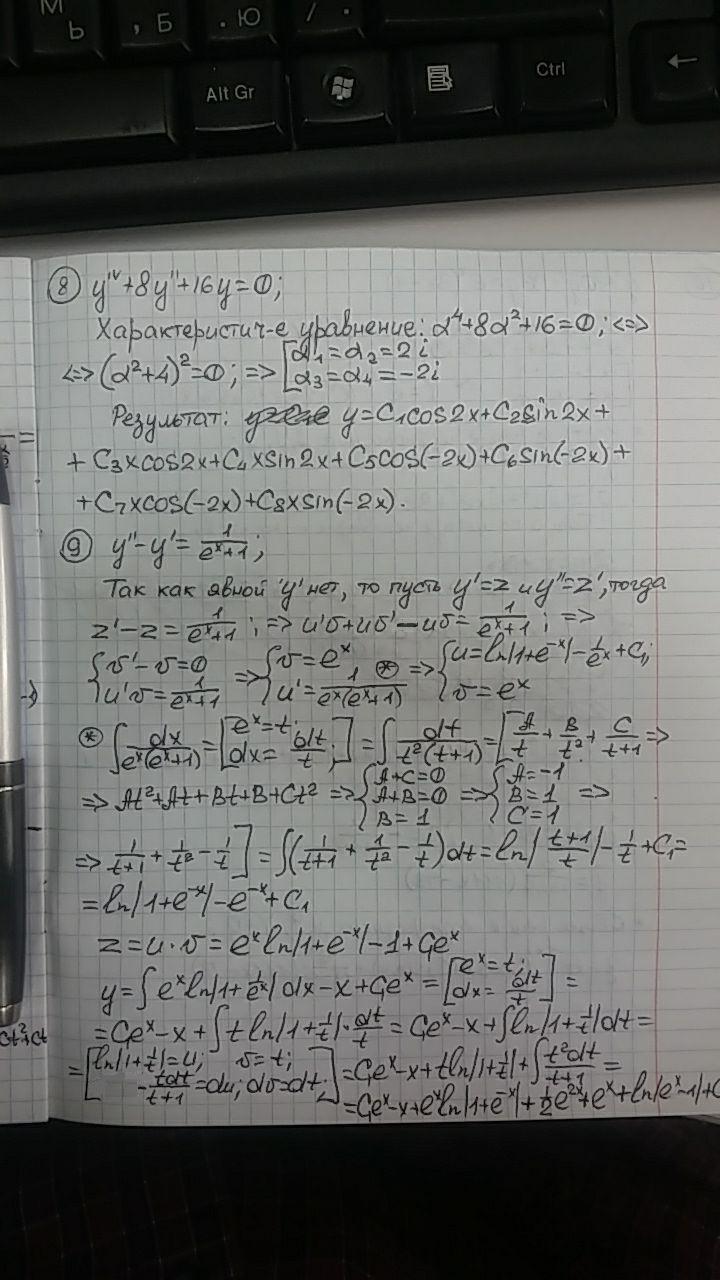 М
Ь
, Б
. Ю
/ .
Alt Gr
Ctrl
⑧ y''''+8y''+16y=0;
Характеристич-е уравнение: α⁴+8α²+16=0; <=>
<=> (α²+4)²=0; => [α₁=α₂=2i
α₃=α₄=-2i
Результат: y=C₁cos2x+C₂sin2x+
+ C₃xcos2x+C₄xsin2x+C₅cos(-2x)+C₆sin(-2x)+
+C₇xcos(-2x)+C₈xsin(-2x).
⑨ y''-y'= 1/(eˣ+1);
Так как явной 'y' нет, то пусть y'=z и y''=z', тогда
z'-z = 1/(eˣ+1); => u'v+uv'-uv= 1/(eˣ+1); =>
{v'-v=0 => {v=eˣ => {u=ln|1+e⁻ˣ|-1/eˣ+C₁;
{u'v=1/(eˣ+1) {u'=1/(eˣ(eˣ+1)) ⊛ {v=eˣ
⊛ ∫dx/(eˣ(eˣ+1))=[eˣ=t; dx=dt/t;]=∫dt/(t²(t+1))=[A/t+B/t²+C/(t+1) =>
=> At²+At+Bt+B+Ct² => {A+C=0 A+B=0 B=1 => {A=-1 B=1 C=1 =>
=> 1/(t+1)+1/t²-1/t]=∫(1/(t+1)+1/t²-1/t)dt=ln|(t+1)/t|-1/t+C₁=
=ln|1+e⁻ˣ|-e⁻ˣ+C₁
z=u·v=eˣln|1+e⁻ˣ|-1+C₁eˣ
y=∫eˣln|1+1/eˣ|dx-x+C₁eˣ=[eˣ=t; dx=dt/t]=
=C₁eˣ-x+∫t ln|1+1/t|·dt/t=C₁eˣ-x+∫ln|1+1/t|dt=
=[ln|1+1/t|=u; v=t; -tdt/(t+1)=du; dv=dt;]=C₁eˣ-x+tln|1+1/t|+∫t²dt/(t+1)=
=C₁eˣ-x+eˣln|1+e⁻ˣ|+1/2e²ˣ+eˣ+ln|eˣ-1|+C